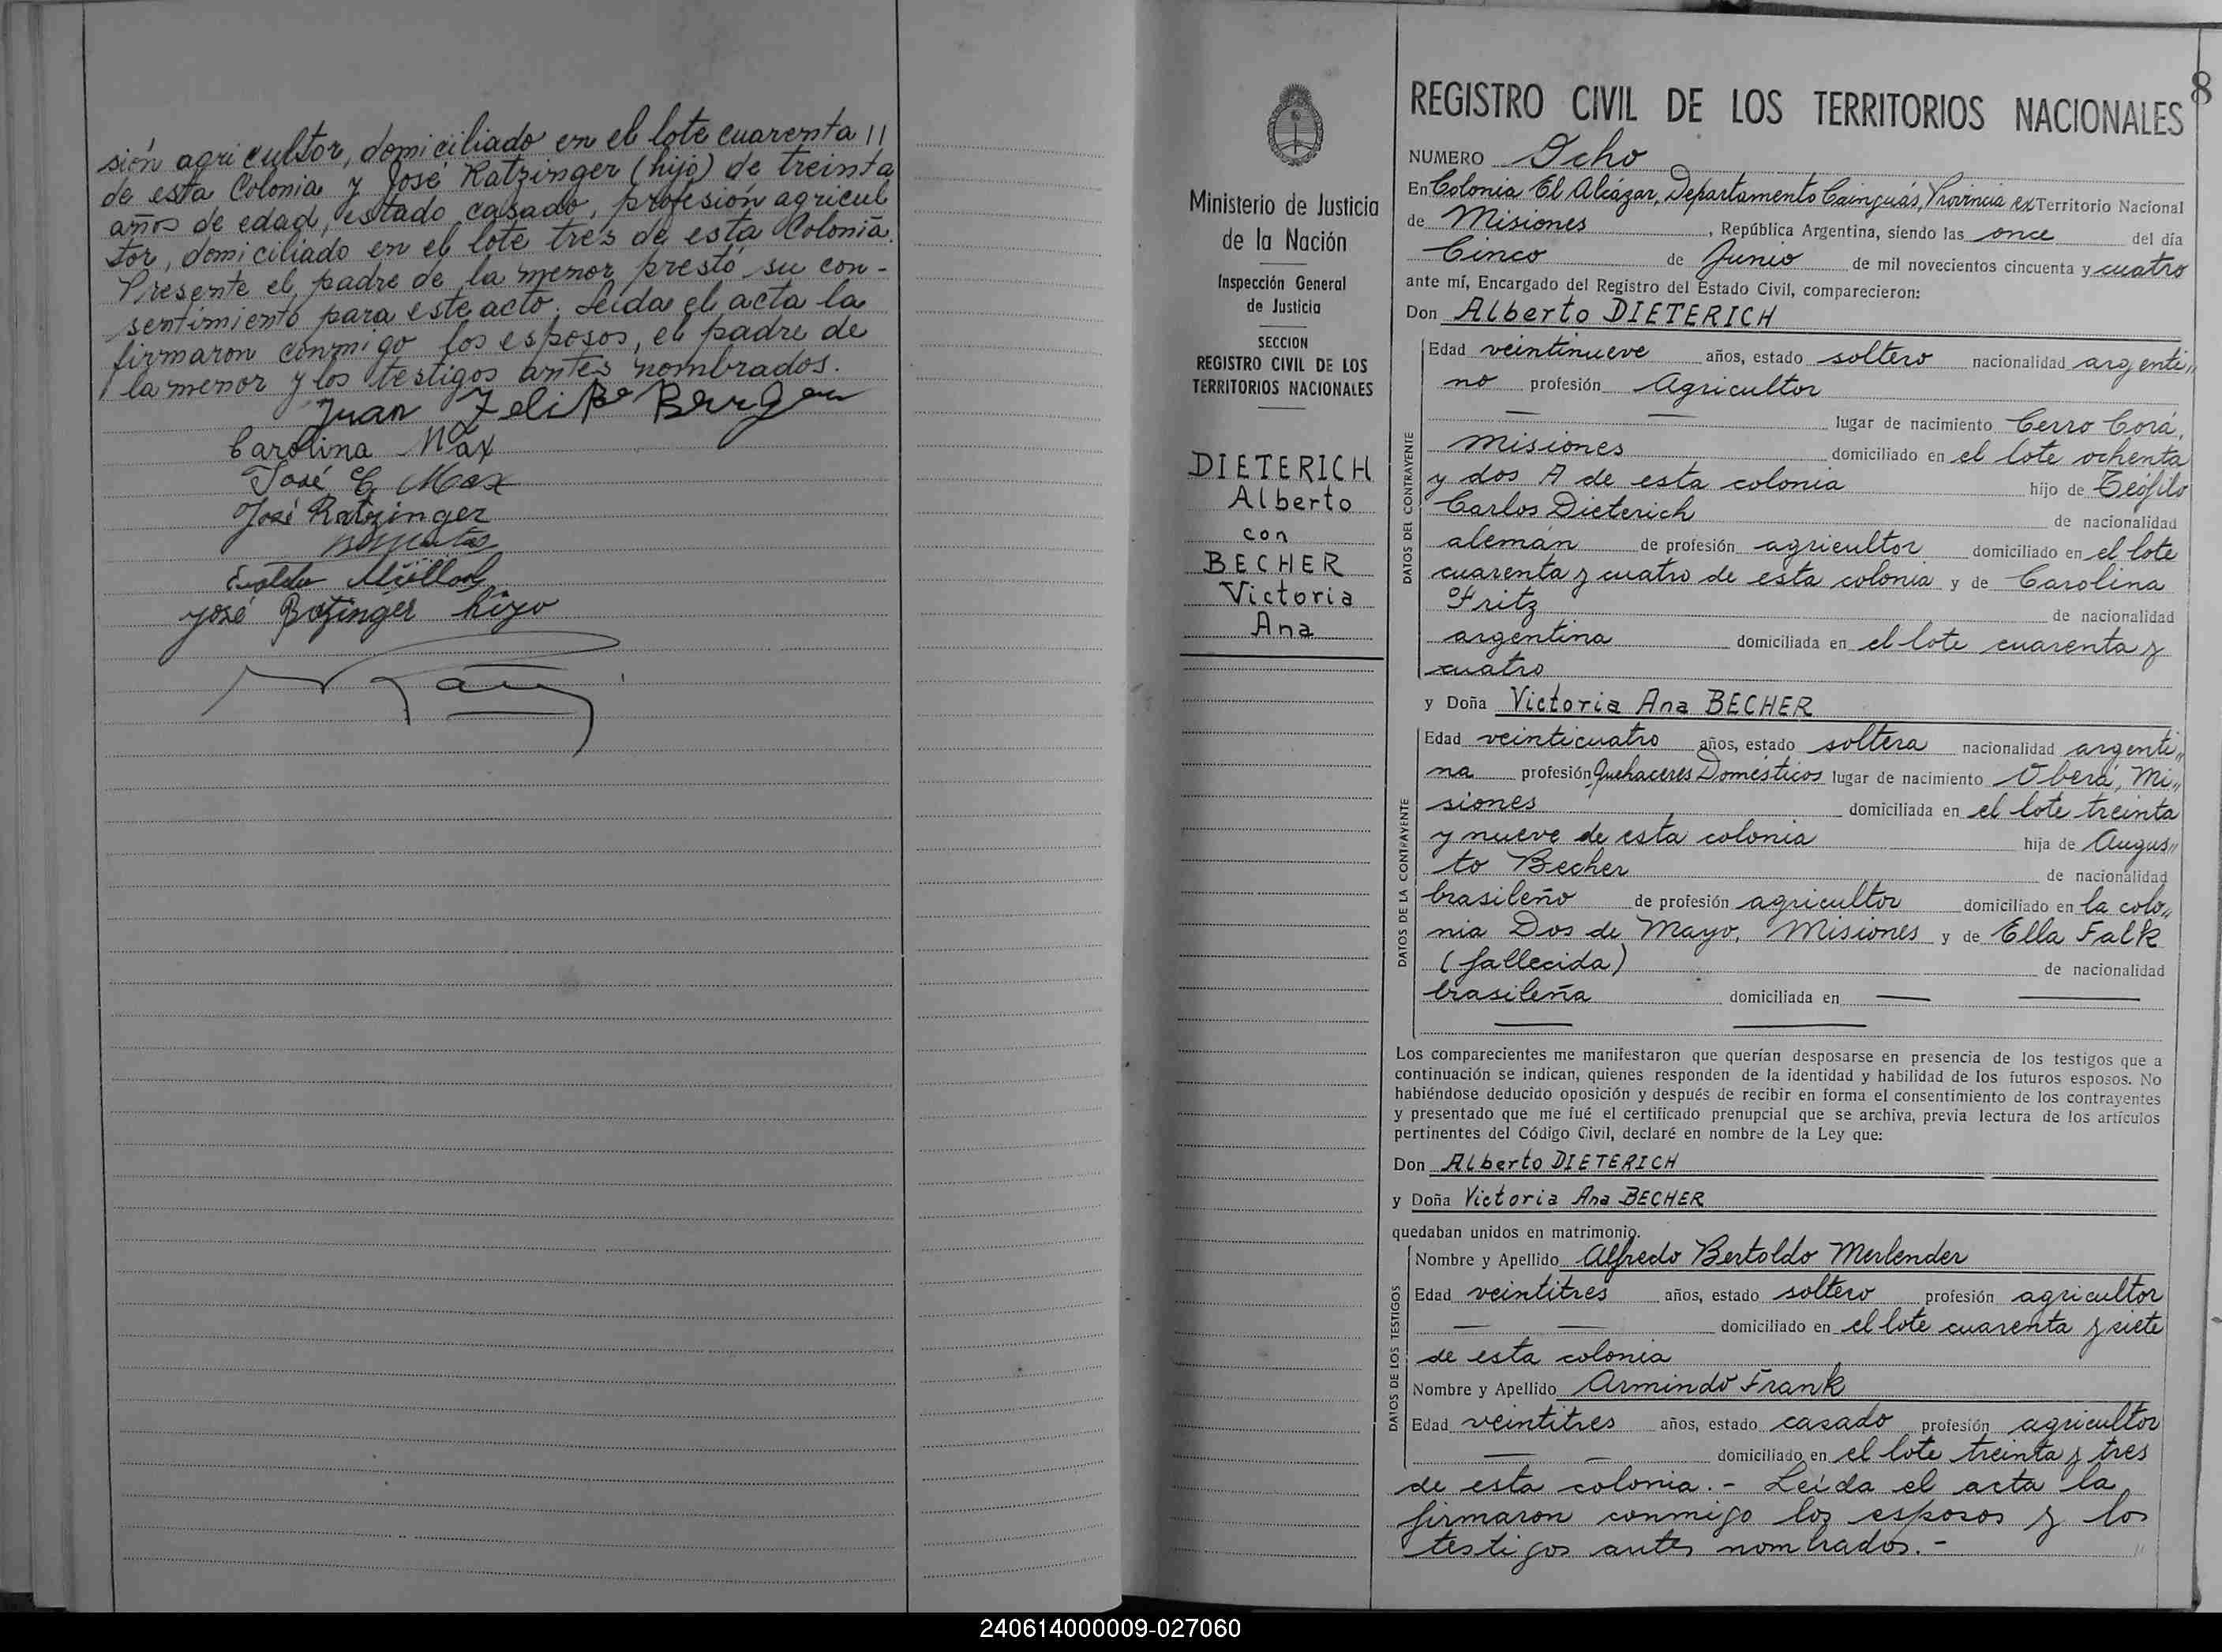 sión agricultor, domiciliado en el lote cuarenta 11
de esta Colonia y José Ratzinger (hijo) de treinta
años de edad, estado casado, profesión agricul
tor, domiciliado en el lote tres de esta Colonia.
Presente el padre de la menor prestó su con-
sentimiento para este acto. Leida el acta la
firmaron conmigo los esposos, el padre de
la menor y los testigos antes nombrados.
Juan Felipe
Carolina Max
José E Max
José Ratzinger
José hijo
8
REGISTRO CIVIL DE LOS TERRITORIOS NACIONALES
NUMERO Ocho
En Colonia El Alcázar, Departamento Cainguás, Provincia ex Territorio Nacional
de Misiones, República Argentina, siendo las once del día
Cinco de Junio de mil novecientos cincuenta y cuatro
ante mí, Encargado del Registro del Estado Civil, comparecieron:
Don Alberto DIETERICH
Edad veintinueve años, estado soltero nacionalidad argenti"
no profesión Agricultor
lugar de nacimiento Cerro Corá,
Misiones domiciliado en el lote ochenta
y dos A de esta colonia hijo de Teófilo
Carlos Dieterich de nacionalidad
alemán de profesión agricultor domiciliado en el lote
cuarenta y cuatro de esta colonia y de Carolina
Fritz de nacionalidad
argentina domiciliada en el lote cuarenta y
cuatro
DATOS DEL CONTRAYENTE
y Doña Victoria Ana BECHER
Edad veinticuatro años, estado soltera nacionalidad argenti"
na profesión Quehaceres Domésticos lugar de nacimiento Oberá, Mi"
siones domiciliada en el lote treinta
y nueve de esta colonia hija de Augus"
to Becher de nacionalidad
brasileño de profesión agricultor domiciliado en la colo"
nia Dos de Mayo, Misiones y de Ella Falk
(fallecida) de nacionalidad
brasileña domiciliada en —— ——
DATOS DE LA CONTRAYENTE
Los comparecientes me manifestaron que querían desposarse en presencia de los testigos que a
continuación se indican, quienes responden de la identidad y habilidad de los futuros esposos. No
habiéndose deducido oposición y después de recibir en forma el consentimiento de los contrayentes
y presentado que me fué el certificado prenupcial que se archiva, previa lectura de los artículos
pertinentes del Código Civil, declaré en nombre de la Ley que:
Don Alberto DIETERICH
y Doña Victoria Ana BECHER
quedaban unidos en matrimonio.
Nombre y Apellido Alfredo Bertoldo Merlender
Edad veintitres años, estado soltero profesión agricultor
domiciliado en el lote cuarenta y siete
de esta colonia
Nombre y Apellido Armindo Frank
Edad veintitres años, estado casado profesión agricultor
domiciliado en el lote treinta y tres
DATOS DE LOS TESTIGOS
de esta colonia.- Leída el acta la
firmaron conmigo los esposos y los
testigos antes nombrados.-
Ministerio de Justicia
de la Nación
Inspección General
de Justicia
SECCION
REGISTRO CIVIL DE LOS
TERRITORIOS NACIONALES
DIETERICH
Alberto
con
BECHER
Victoria
Ana
240614000009-027060